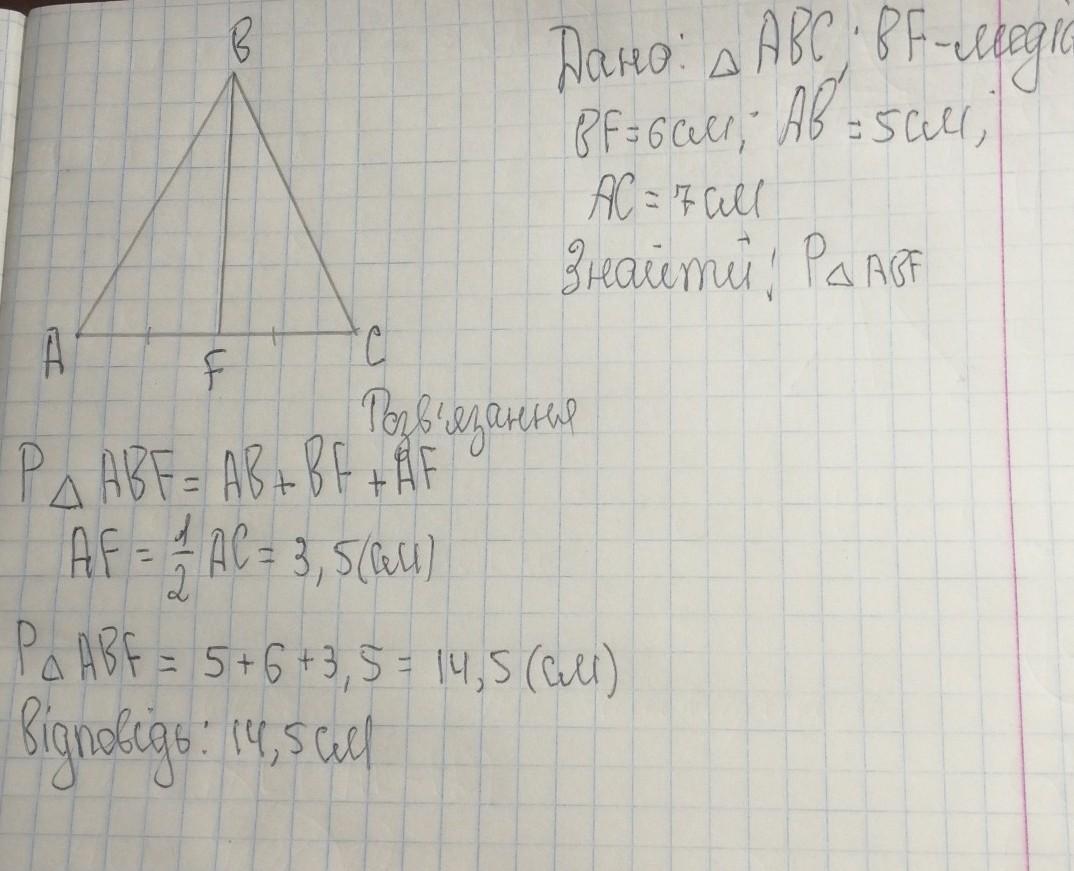 B
A
F
C
Дано: △ ABC; BF-медіа
BF=6см; AB=5см;
AC=7см
Знайти: P△ABF
Розв'язання
P△ABF= AB+BF+AF
AF=1/2 AC=3,5(см)
P△ABF= 5+6+3,5=14,5(см)
Відповідь: 14,5см